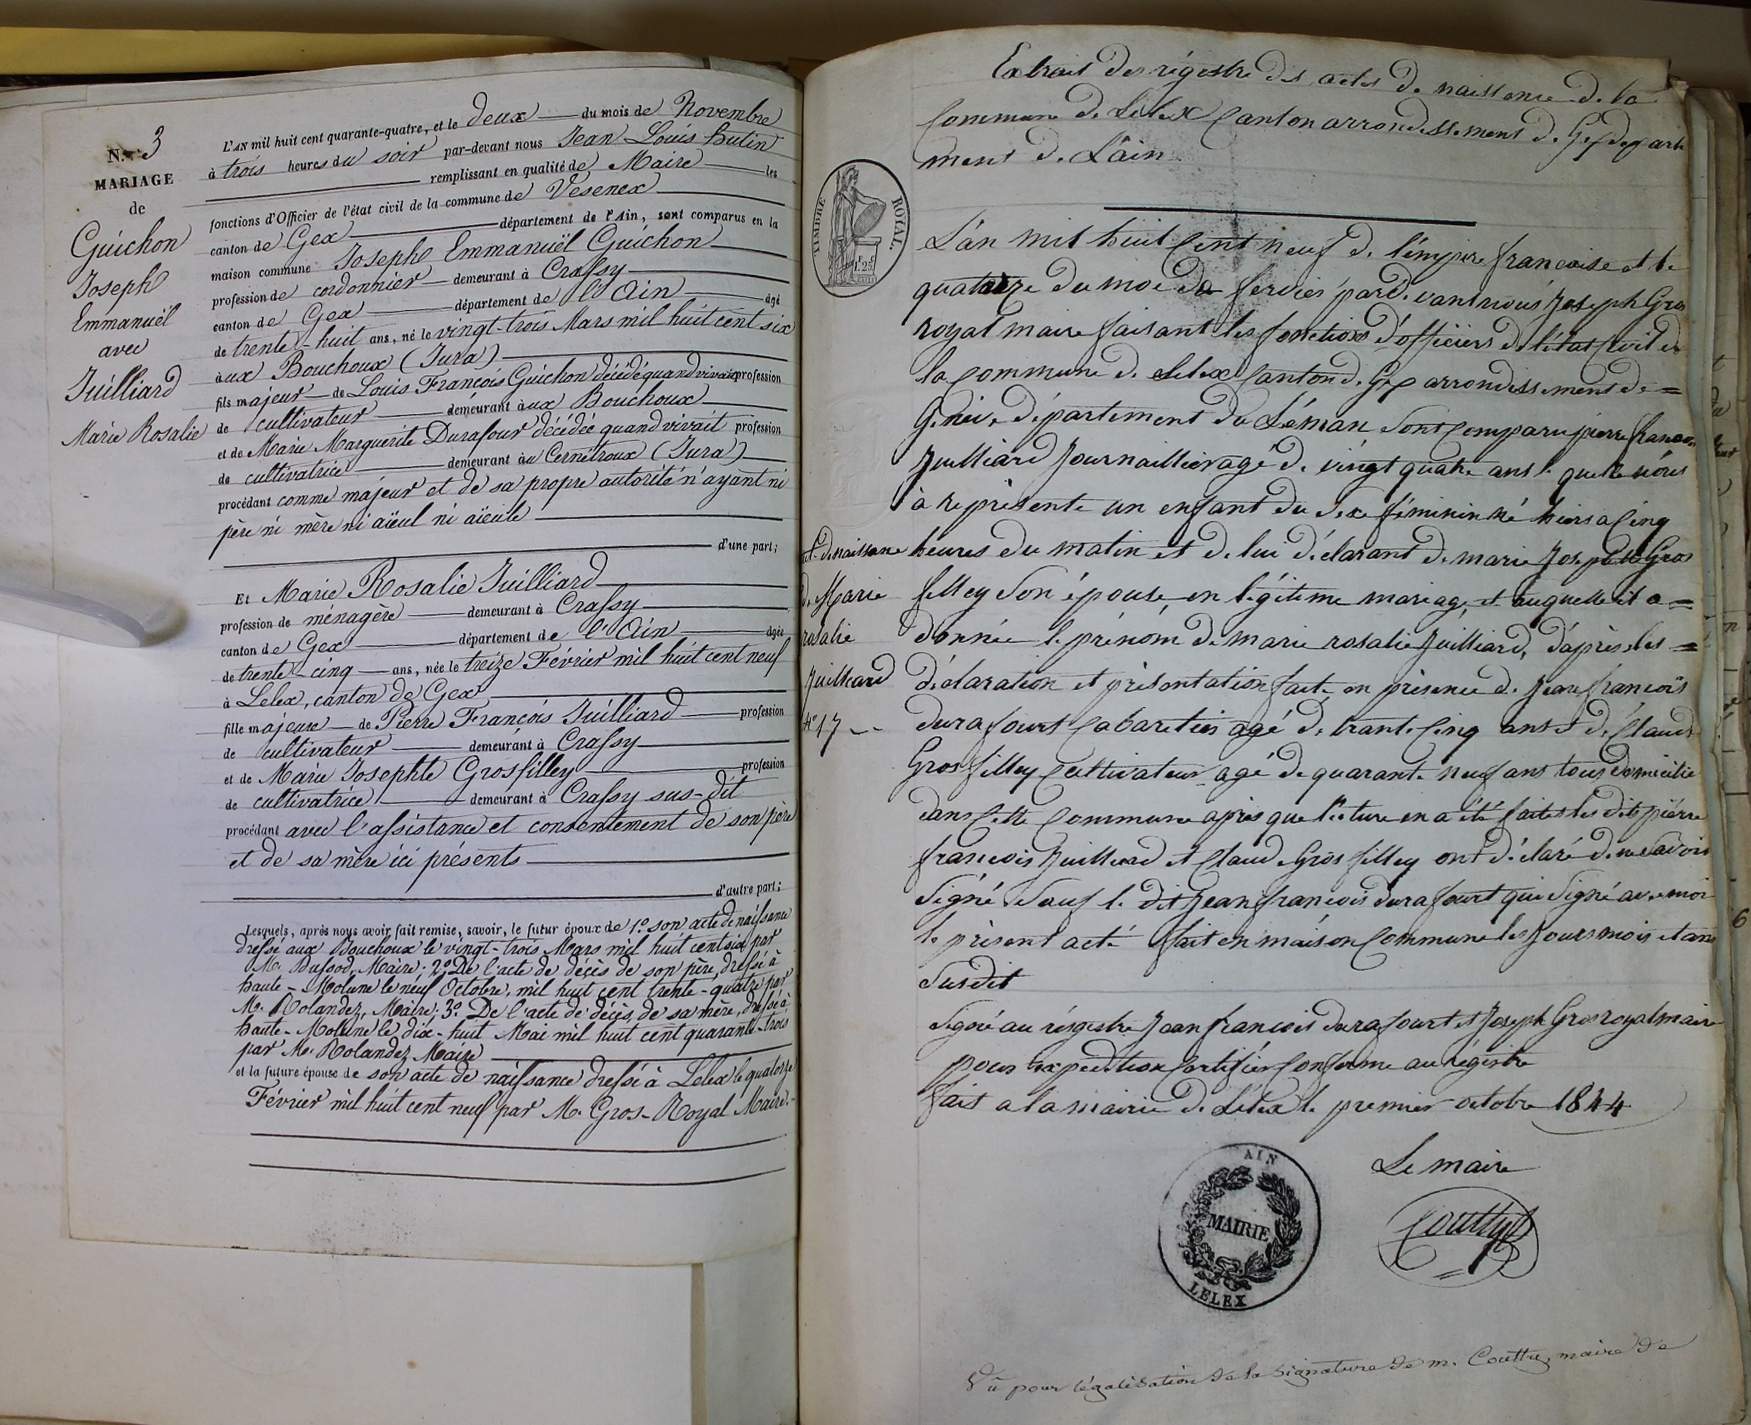 N.º 3
MARIAGE
de
Guichon
Joseph
Emmanuël
avec
Juilliard
Marie Rosalie
L'AN mil huit cent quarante-quatre, et le deux du mois de Novembre
à trois heures du soir par-devant nous Jean Louis hutin
remplissant en qualité de Maire les
fonctions d'Officier de l'état civil de la commune de Vesenex
canton de Gex département de l'Ain, sont comparus en la
maison commune Joseph Emmanuël Guichon
profession de cordonnier demeurant à Crassy
canton de Gex département de l'Ain âgé
de trente-huit ans, né le vingt-trois Mars mil huit cent six
aux Bouchoux (Jura)
fils majeur de Louis François Guichon décédé quand vivait profession
de cultivateur demeurant aux Bouchoux
et de Marie Marguerite Durafour décédée quand vivait profession
de cultivatrice demeurant au Cernétroux (Jura)
procédant comme majeur et de sa propre autorité n'ayant ni
père ni mère ni aïeul ni aïeule
d'une part;
Et Marie Rosalie Juilliard
profession de ménagère demeurant à Crassy
canton de Gex département de l'Ain âgée
de trente-cinq ans, née le treize Février mil huit cent neuf
à Lelex, canton de Gex
fille majeure de Pierre François Juilliard profession
de cultivateur demeurant à Crassy
et de Marie Josephte Grosfilley profession
de cultivatrice demeurant à Crassy sus-dit
procédant avec l'assistance et consentement de son père
et de sa mère ici présents
d'autre part;
Lesquels, après nous avoir fait remise, savoir, le futur époux de 1º son acte de naissance
dressé aux Bouchoux le vingt-trois Mars mil huit cent six par
Mr. Bussod, Maire; 2º De l'acte de décès de son père, dressé à
haute-Molune le neuf Octobre, mil huit cent trente-quatre par
Mr. Rolandez, Maire; 3º De l'acte de décès de sa mère, dressé à
haute-Molune le dix-huit Mai mil huit cent quarante-trois
par Mr. Rolandez Maire
et la future épouse de son acte de naissance dressé à Lelex le quatorze
Février mil huit cent neuf par Mr. Gros-Royal Maire.
Extrait des régistre des actes de naissance de la
Commune de Lélex Canton arrondissement de Gex departe
ment de L'ain
TIMBRE ROYAL
1.25
L'an mil huit Cent neuf de l'émpire francaise et le
quatorze du moi de fevrier pardevant nous Joseph Gros
royal maire faisant les fonctions d'officiers de l'état Civil de
la commune de Lelex Canton de Gex arrondissement de =
Genève département du Léman sont Comparu pierre francois
Juilliard Journaillier agé de vingt quatre ans le quelle nous
à représenté un enfant du sexe féminin né hiers a Cinq
heures du matin et de lui déclarant de marie Josephte Gros
filley son épouse en légitime mariage, et auquelle il a =
donnée le prénom de marie rosalie Juilliard, d'après les =
déclaration et présentation faite en présence de Jean françois
durafourt Cabaretier agé de trante Cinq ans et de Claude
Gros filley Cultivateur agé de quarante neuf ans tous domicilié
dans cette Commune après que lecture en a été faites les dits pierre
francois Juilliard et Claude Gros filley ont déclaré de ne savoir
signé sauf le dit Jean françois durafourt qui signé avec moi
le présent acte fait en maison Commune les Jours mois et ans
susdit
acte de naissance
de Marie
rosalie
Juilliard
nº 17
Signé au régistre Jean francois durafourt et Joseph Gros royal maire
pour expédition Certifiée Conforme au régistre
fait a la mairie de Lélex le premier octobre 1844
Le maire
Couttys
AIN
MAIRIE
LELEX
Vu pour légalisation de la signature de m. Couttu, maire de
6